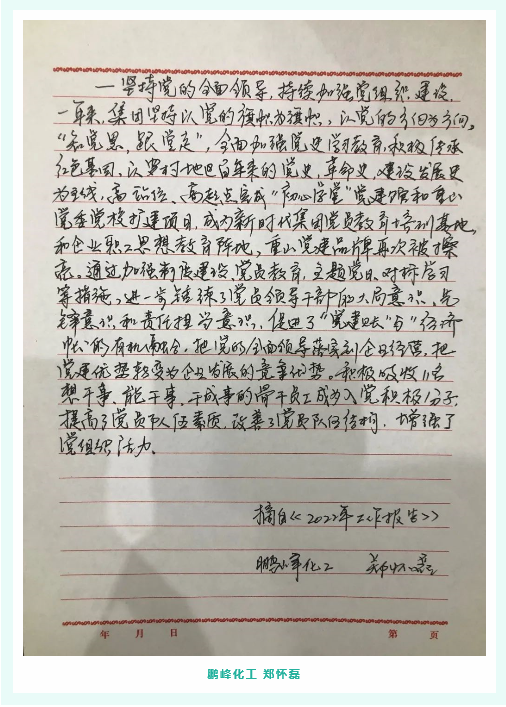 一 坚持党的全面领导，持续加强党组织建设。
一年来，集团坚持以党的旗帜为旗帜，以党的方向为方向，
“知党恩，跟党走”，全面加强党史学习教育，积极传承
红色基因，以 地区百年来的党史，革命史，建设发展史
为主线，高站位、高起点完成“初心学堂”党建馆和重山
党委党校扩建项目，成为新时代集团党员教育培训基地，
和企业职工思想教育阵地，重山党建品牌再次被擦
亮。通过加强制度建设，党员教育，主题党日、对标学习
等措施，进一步锤炼了党员领导干部的大局意识、先
锋意识和责任担当意识，促进了“党建账”与“经济
账”的有机融合，把党的全面领导落实到企业经营，把
党建优势转变为企业发展的竞争优势。积极吸收11名
想干事、能干事、干成事的骨干员工成为入党积极分子
提高了党员队伍素质，改善了党员队伍结构，增强了
党组织活力。
摘自《2022年工作报告》
鹏峰化工 郑怀磊
年 月 日 第 页
鹏峰化工 郑怀磊